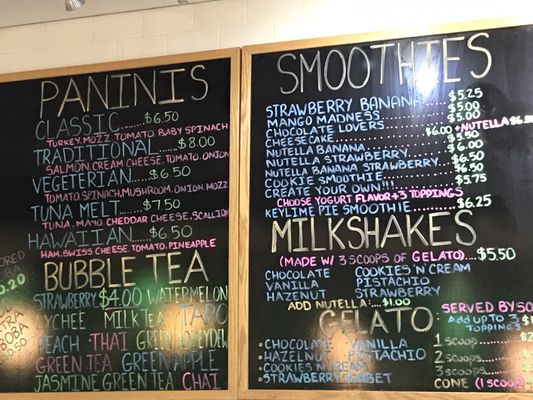 PANINIS
CLASSIC.....$6.50
TURKEY, MOZZ, TOMATO, BABY SPINACH
TRADITIONAL.....$8.00
SALMON CREAM CHEESE, TOMATO, ONION
VEGETERIAN.....$6.50
TOMATO, SPINACH, MUSHROOM, ONION, MOZZ
TUNA MELT.....$7.50
TUNA, MAYO CHEDDAR CHEESE, SCALLION
HAWAIIAN.....$6.50
HAM, SWISS CHEESE, TOMATO, PINEAPPLE
BUBBLE TEA
STRAWBERRY $4.00 WATERMELON
LYCHEE MILK TEA TARO
PEACH THAI GREEN HONEYDEW
GREEN TEA GREEN APPLE
JASMINE GREEN TEA CHAI
SMOOTHIES
STRAWBERRY BANANA.....$5.25
MANGO MADNESS.....$5.00
CHOCOLATE LOVERS.....$5.00
CHEESECAKE.....$6.00 +NUTELLA
NUTELLA BANANA.....$5.50
NUTELLA STRAWBERRY.....$6.00
NUTELLA BANANA STRAWBERRY.....$6.50
COOKIE SMOOTHIE.....$6.50
CREATE YOUR OWN!!!.....$5.75
CHOOSE YOGURT FLAVOR+3 TOPPINGS
KEYLIME PIE SMOOTHIE.....$6.25
MILKSHAKES
(MADE W/ 3 SCOOPS OF GELATO)....$5.50
CHOCOLATE COOKIES 'N CREAM
VANILLA PISTACHIO
HAZENUT STRAWBERRY
ADD NUTELLA:....$1.00
GELATO: SERVED BY
ADD UP TO 3
TOPPINGS
CHOCOLATE VANILLA 1 SCOOP
HAZELNUT PISTACHIO 2 SCOOPS
COOKIES N CREAM 3 SCOOPS
STRAWBERRY SORBET CONE (1 SCOOP)